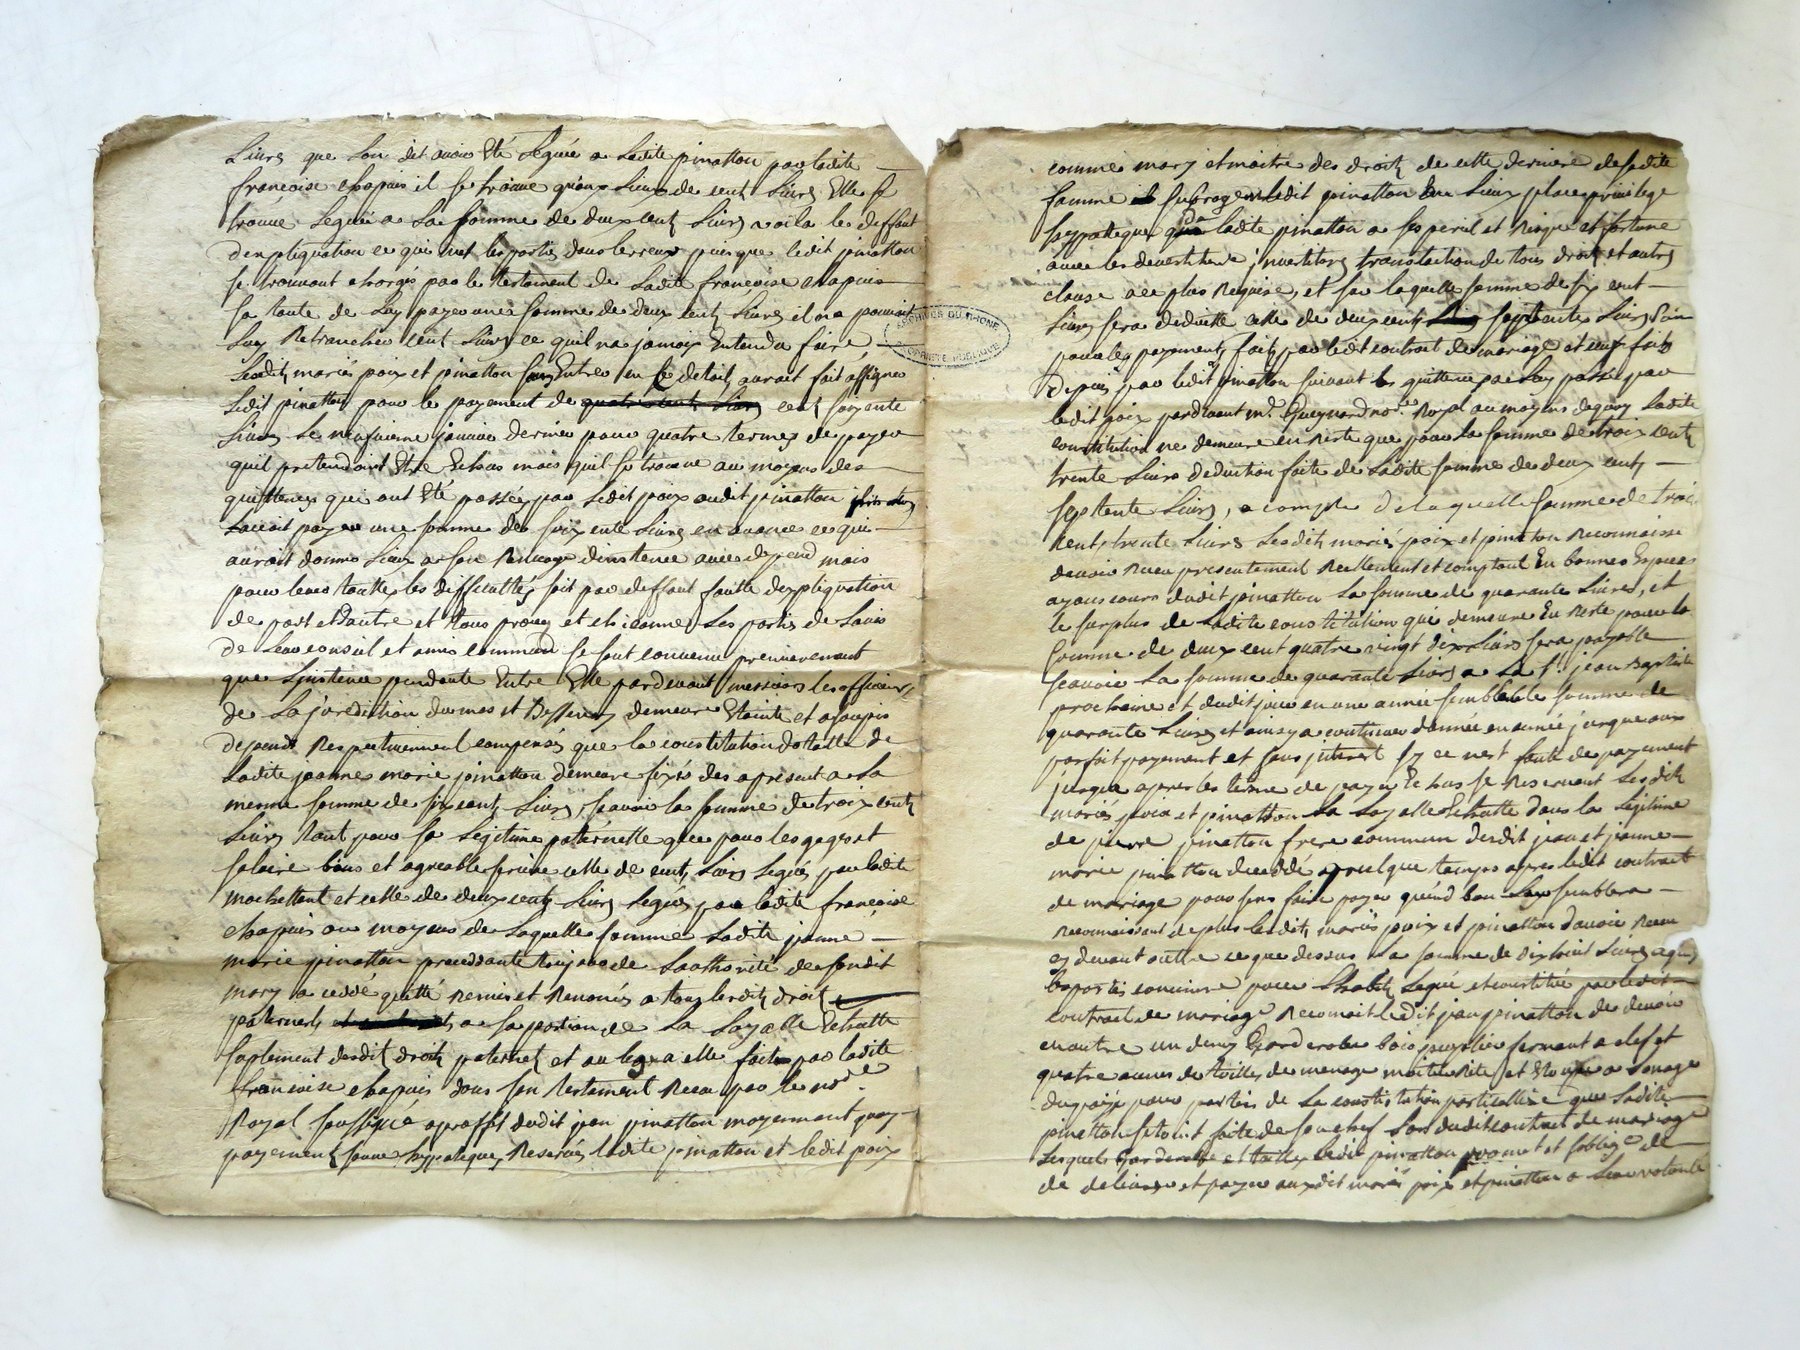 Livres que lon dit avoir Eté Léguée a Ladite pinatton par ladite
françoise chapuis il se trouve qu'aux Lieux de cent Livres Elle se
trouve Leguée a La somme de deux cent Livres voila le deffaut
dexpliquation ce qui met les partis dans lerreur puisque ledit pinatton
se trouvant chargés par le testament de Ladite françoise chapuis
sa tante de Luy payer une somme de deux cent Livres il ne pouvait
Luy Retrancher cent Livres ce quil na jamais Entendu faire
Lesdits mariés poix et pinatton sans Entrer en ce detait aurait fait assigner
Ledit pinatton pour le payement de cent soixante
Livres Le neufvieme janvier dernier pour quatre termes de payer
quil pretendoint Etre Echus mais quil se trouve au moyens des
quittences qui ont Eté passées par Ledit poix audit pinatton
Lavait payer une somme de cents Livres en avance ce qui
aurait donné Lieux a son Renvoy dinstence avec depend mais
pour Lever touttes les difficultés soit par deffaut fautte dexpliquation
de part et dautre et tous procez et chicanne Les partis de Lavis
de Leur conseil et amis commun se sont convenu premierement
que Linstence pendante Entre Elle pardevant messieurs les officiers
de La jurediction demeure Eteinte et assoupis
depends Respectivement compensés que la constitution dottalle de
Ladite jeanne marie pinatton demeure fixés des apresent a La
meme somme de six cents Livres, sçavoir la somme de trois cents
Livres tant pour sa Legitime paternelle que pour les gages et
salaire bons et agreable service celle de cent Livres Legués par ladite
mochettant et celle de deux cents Livres legués par ladite françoise
chapuis au moyens de Laquelle somme Ladite jeanne
marie pinatton procedante toujours de Lauthorité de sondit
mary a ceddé quitté remis et Renoncés a tous lesdits droits
paternels a sa portion de La Layalle Echutte
suplement desdits droits paternels et au legs a elle fait par ladite
francoise chapuis dans son testement Receu par le nore
Royal soussigné aproffit dudit jean pinatton moyennant quoy
payement sauve hypoteques Reservés Ladite pinatton et ledit poix
comme mary et maitre des droits de cette derniere de ladite
famme subroge Ledit pinatton En Lieux place privilege
hypoteque de ladite pinatton a ses peril et Risque et fortune
avec les devestiture jnvestiture translaction de tous droits et autres
clause a ce plus Requise, et sur laquelle somme de six cent
Livres sera deduitte celle de deux cents septante Livres
pour les payements faits par ledit contrat de mariage et ceux faits
depuis par ledit pinatton suivant les quittence par Luy passé par
ledit poix pardevant me. nore. Royal au moyens dequoy Ladite
constitution ne demeure en Reste que pour la somme de trois cents
trente Livres deduction faite de Ladite somme de deux cents
septente Livres, a compte de laquelle somme de trois
cents trente Livres Lesdits mariés poix et pinatton Reconnaisse
davoir Receu presentement Reellement et comptant En bonnes Especes
ayans cours dudit pinatton La somme de quarante Livres, et
le surplus de Ladite constitution qui demeure En Reste pour la
somme de deux cent quatre vingt dix Livres sera payable
sçavoir La somme de quarante Livres a La St. jean Baptiste
prochaine et dudit jour en une année semblable somme de
quarante Livres et ainsy a continuer dannée en année jusque aux
parfait payement et sans jnterest sy ce nest faute de payement
jusque apres les terme de payer Echus se Reservant Lesdits
mariés poix et pinatton La Layalle Echutte dans la Legitime
de pierre pinatton frere commun dudit jean et jeanne
marie pinatton deceddé quelque temps apres ledit contrat
de mariage pour sen faire payer quand bon Luy semblera
Reconnaissent de plus lesdits mariés poix et pinatton davoir Receu
cy devant outre ce que dessus La somme de dix huit Livres
les partis convenue pour Lhabits Legué et constitué par ledit
contrat de mariage Reconnait Ledit jean pinatton de devoir
en outre un demy Garderobe bois fermant a clef et
quatre aunes de toille de menage et a Lusage
du païs pour partis de La constitution particullière que Ladite
pinatton setoint faite de son chef Lors dudit contrat de mariage
Lesquels Garderobe et toille ledit pinatton promet et soblige de
de delivrer et payer auxdit mariés poix et pinatton a Leur volonté
ARCHIVES DU RHONE